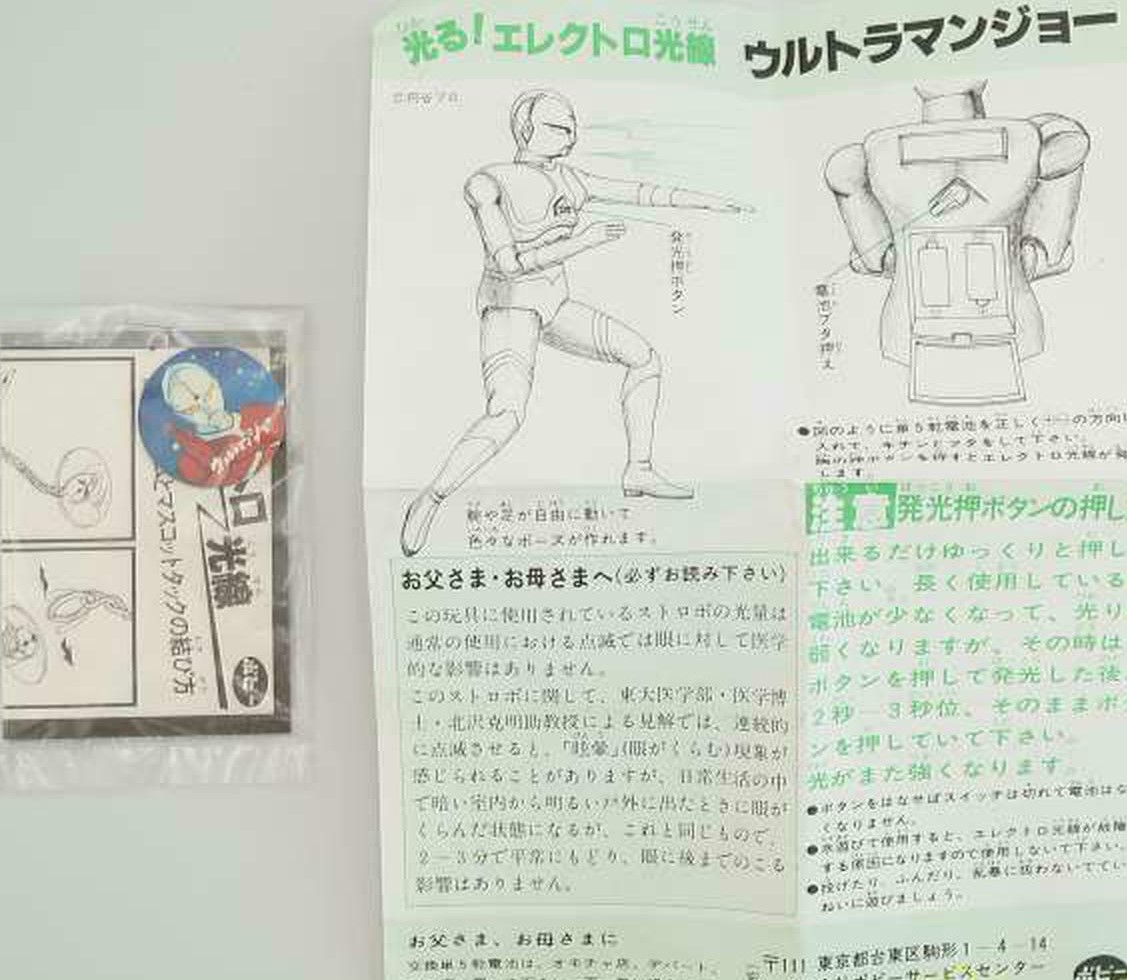 光る!エレクトロ光線
ウルトラマンジョー
©円谷プロ
発光押ボタン
電池フタ押え
腕や足が自由に動いて
色々なポーズが作れます。
●図のように単5乾電池を正しく+−の方向に
入れて、キチンとフタをして下さい。
胸の押ボタンを押すとエレクトロ光線が発
します。
お父さま・お母さまへ(必ずお読み下さい)
この玩具に使用されているストロボの光量は
通常の使用における点滅では眼に対して医学
的な影響はありません。
このストロボに関して、東大医学部・医学博
士・北沢克明助教授による見解では、連続的
に点滅させると、「眩暈」(眼がくらむ)現象が
感じられることがありますが、日常生活の中
で暗い室内から明るい戸外に出たときに眼が
くらんだ状態になるが、これと同じもので、
2−3分で平常にもどり、眼に後までのこる
影響はありません。
注意 発光押ボタンの押し
出来るだけゆっくりと押し
下さい。長く使用している
電池が少なくなって、光り
弱くなりますが、その時は
ボタンを押して発光した後
2秒−3秒位、そのままボタ
ンを押していて下さい。
光がまた強くなります。
●ボタンをはなせばスイッチは切れて電池はな
くなりません。
●水遊びで使用すると、エレクトロ光線が故障
する原因になりますので使用しないて下さい。
●投げたり、ふんだり、乱暴に扱わないててい
ねいに遊びましょう。
お父さま、お母さまに
交換単5乾電池は、オモチャ店、デパート、
〒111 東京都台東区駒形1−4−14
ポピーサービスセンター
ロ光線
とマスコットタックの結び方
ポピー